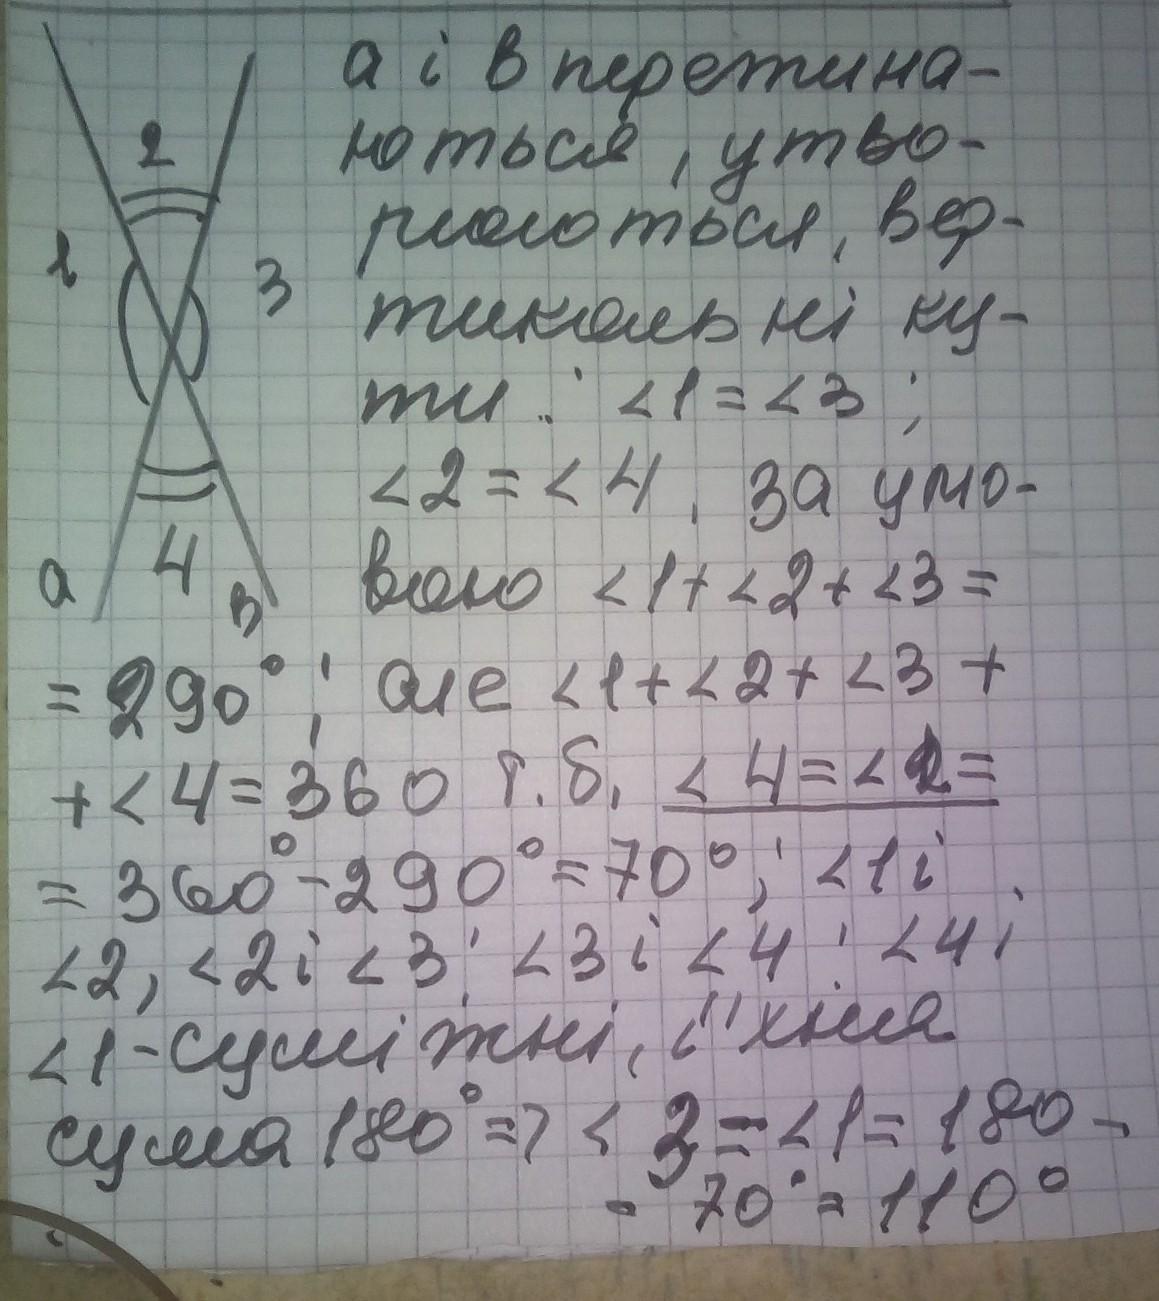 а і в перетина-
ються, утво-
рюються, вер-
тикальні ку-
ти: <1=<3;
<2=<4. за умо-
вою <1+<2+<3=
=290°; але <1+<2+<3+
+<4=360 т.б. <4=<2=
=360°-290°=70°; <1 і
<2, <2 і <3; <3 і <4; <4 і
<1-суміжні, їхня
сума 180°=> <3=<1=180-
- 70°=110°
2
1
3
4
а
в